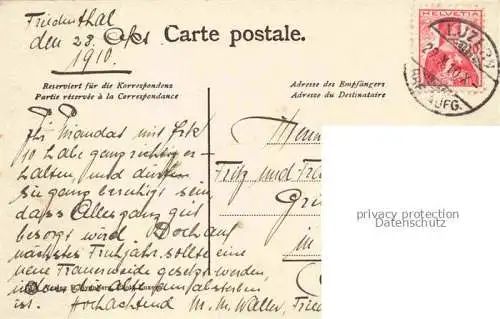 Friedenthal
den 28. Okt
1910.
Carte postale.
HELVETIA
LUZERN
BRF. AUFG.
Reserviert für die Korrespondenz
Partie réservée à la Correspondance
Adresse des Empfängers
Adresse du Destinataire
Ihr Mandat mit Frk
10 habe ganz richtig er-
halten, und dürfen
Sie ganz beruhigt sein
dass Alles ganz gut
besorgt wird. Doch auf
nächstes Frühjahr sollte eine
neue Trauerweide gesetzt werden,
indem die alte am absterben
ist. Hochachtend
Fritz und
in
privacy protection
Datenschutz